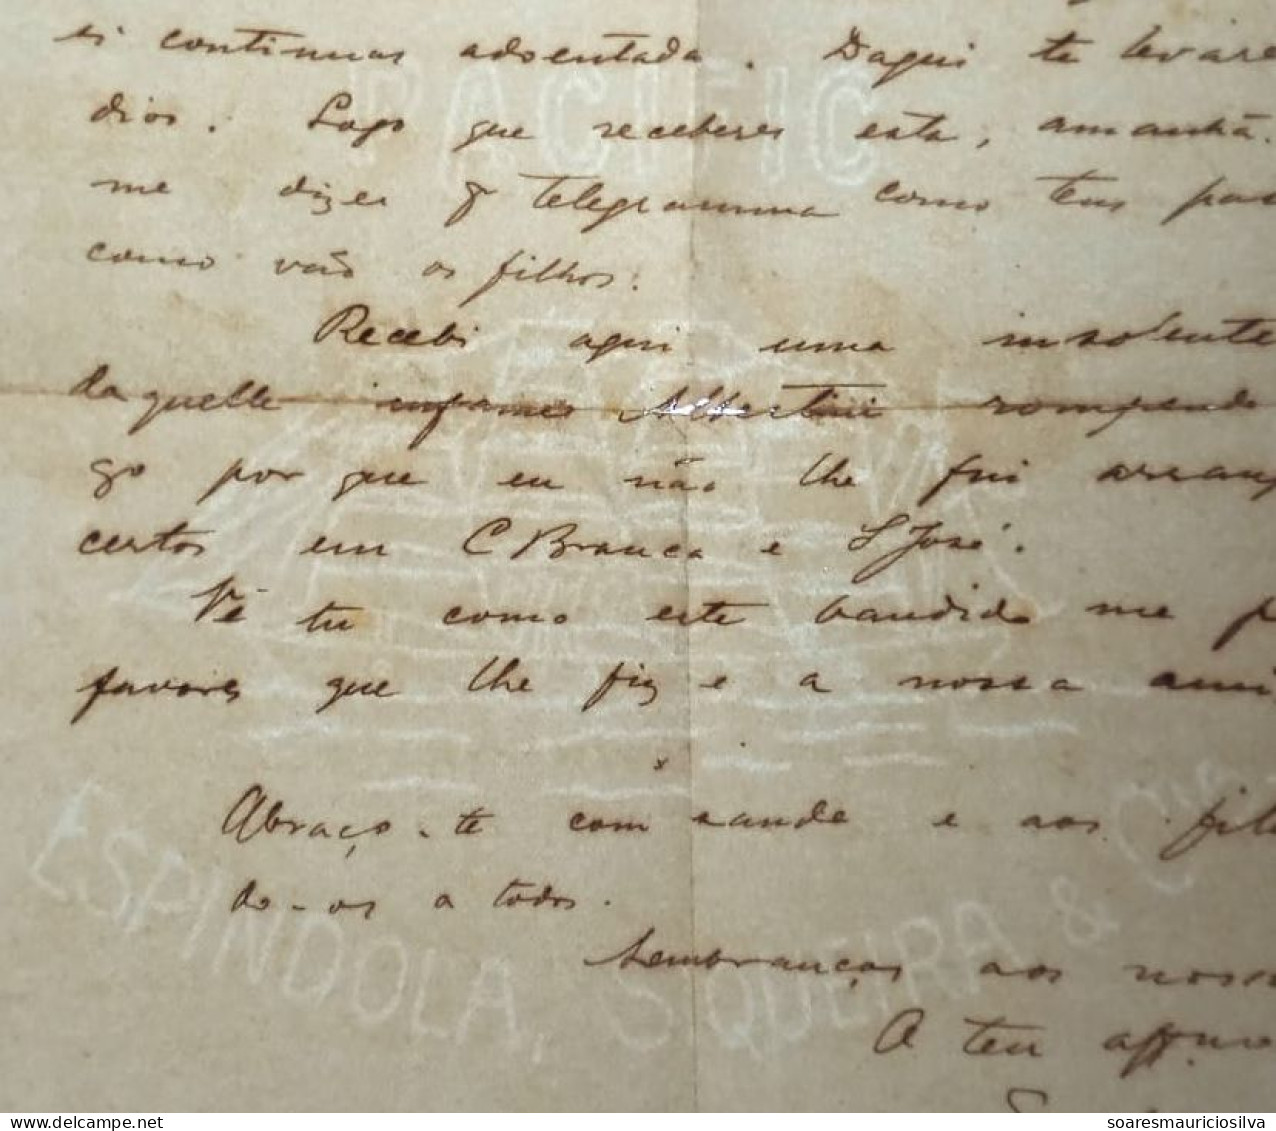 ei continuas adoentada. Daqui te levare
dios. Logo que receberes esta, amanhã.
me dizer p telegramma como tens pas
como vão os filhos.
Recebi aqui uma insolente
daquelle infame Albertini rompendo
go por que eu não lhe fui arranj
certos em C Branca e S José.
Vê tu como este bandido me p
favores que lhe fiz e a nossa ami
Abraço-te com saude e aos filh
do-os a todos.
Lembranças aos nosso
O teu affmo
PACIFIC
ESPINDOLA, SIQUEIRA & Cia
soaresmauriciosilva